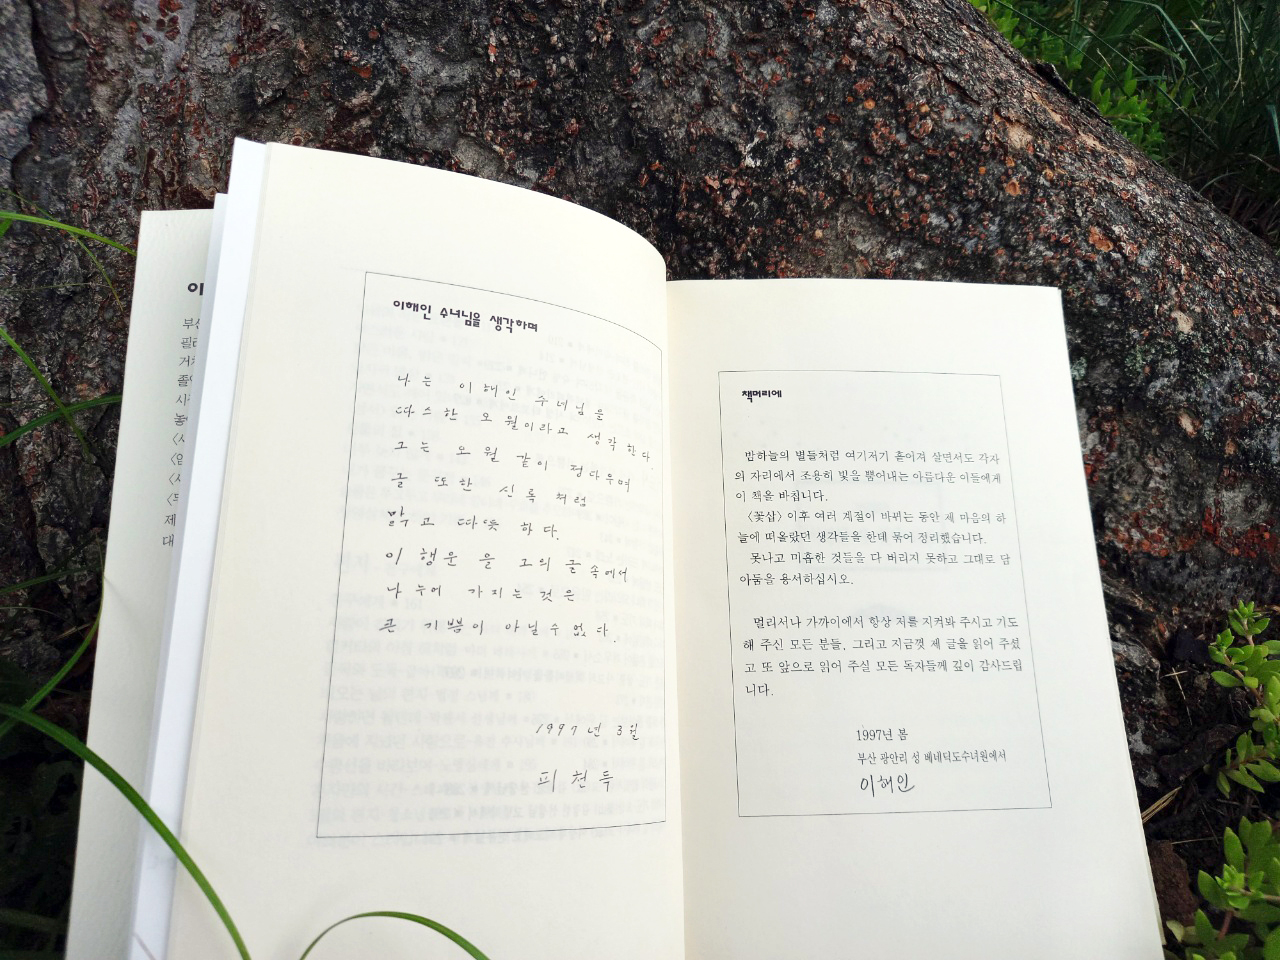 이해인 수녀님을 생각하며
나는 이해인 수녀님을
따스한 오월이라고 생각한다.
그는 오월 같이 정다우며
글 또한 신록처럼
맑고 따뜻하다.
이 행운을 그의 글 속에서
나누어 가지는 것은
큰 기쁨이 아닐 수 없다.
1997년 3월
피천득
책머리에
밤하늘의 별들처럼 여기저기 흩어져 살면서도 각자
의 자리에서 조용히 빛을 뿜어내는 아름다운 이들에게
이 책을 바칩니다.
〈꽃삽〉 이후 여러 계절이 바뀌는 동안 제 마음의 하
늘에 떠올랐던 생각들을 한데 묶어 정리했습니다.
못나고 미흡한 것들을 다 버리지 못하고 그대로 담
아둠을 용서하십시오.
멀리서나 가까이에서 항상 저를 지켜봐 주시고 기도
해 주신 모든 분들, 그리고 지금껏 제 글을 읽어 주셨
고 또 앞으로 읽어 주실 모든 독자들께 깊이 감사드립
니다.
1997년 봄
부산 광안리 성 베네딕도수녀원에서
이해인